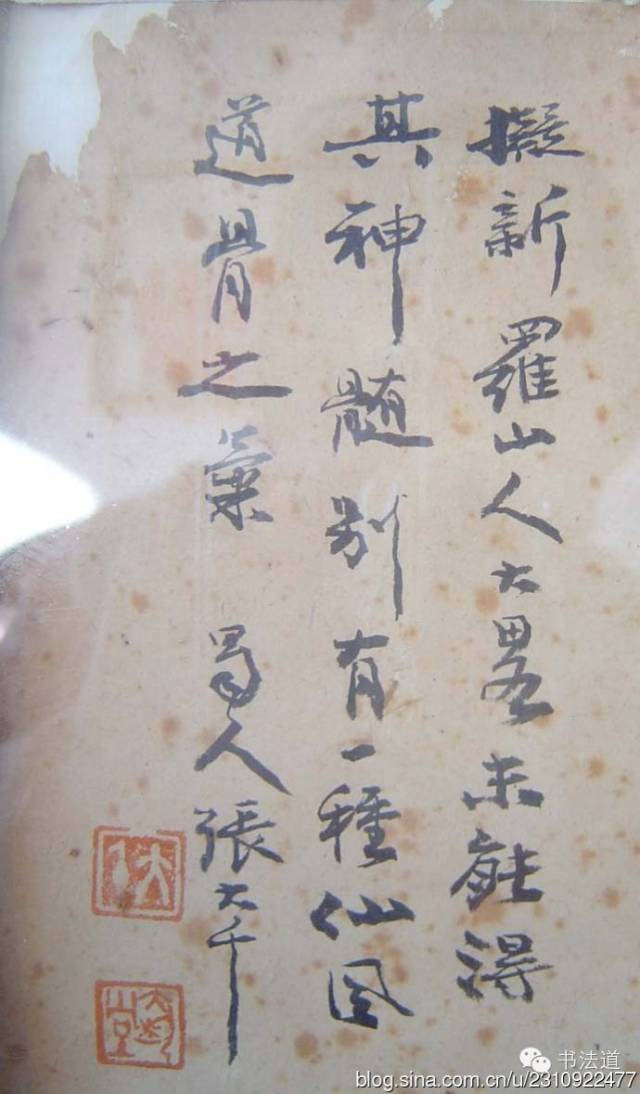 擬新羅山人大畧未能得
其神髓別有一種仙風
道骨之氣 蜀人張大千
书法道
blog.sina.com.cn/u/2310922477